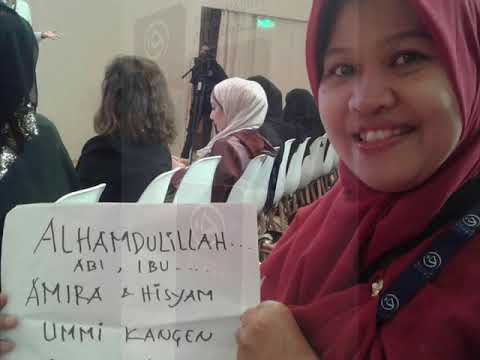 ALHAMDULILLAH...
ABI, IBU....
AMIRA & HISYAM
UMMI KANGEN